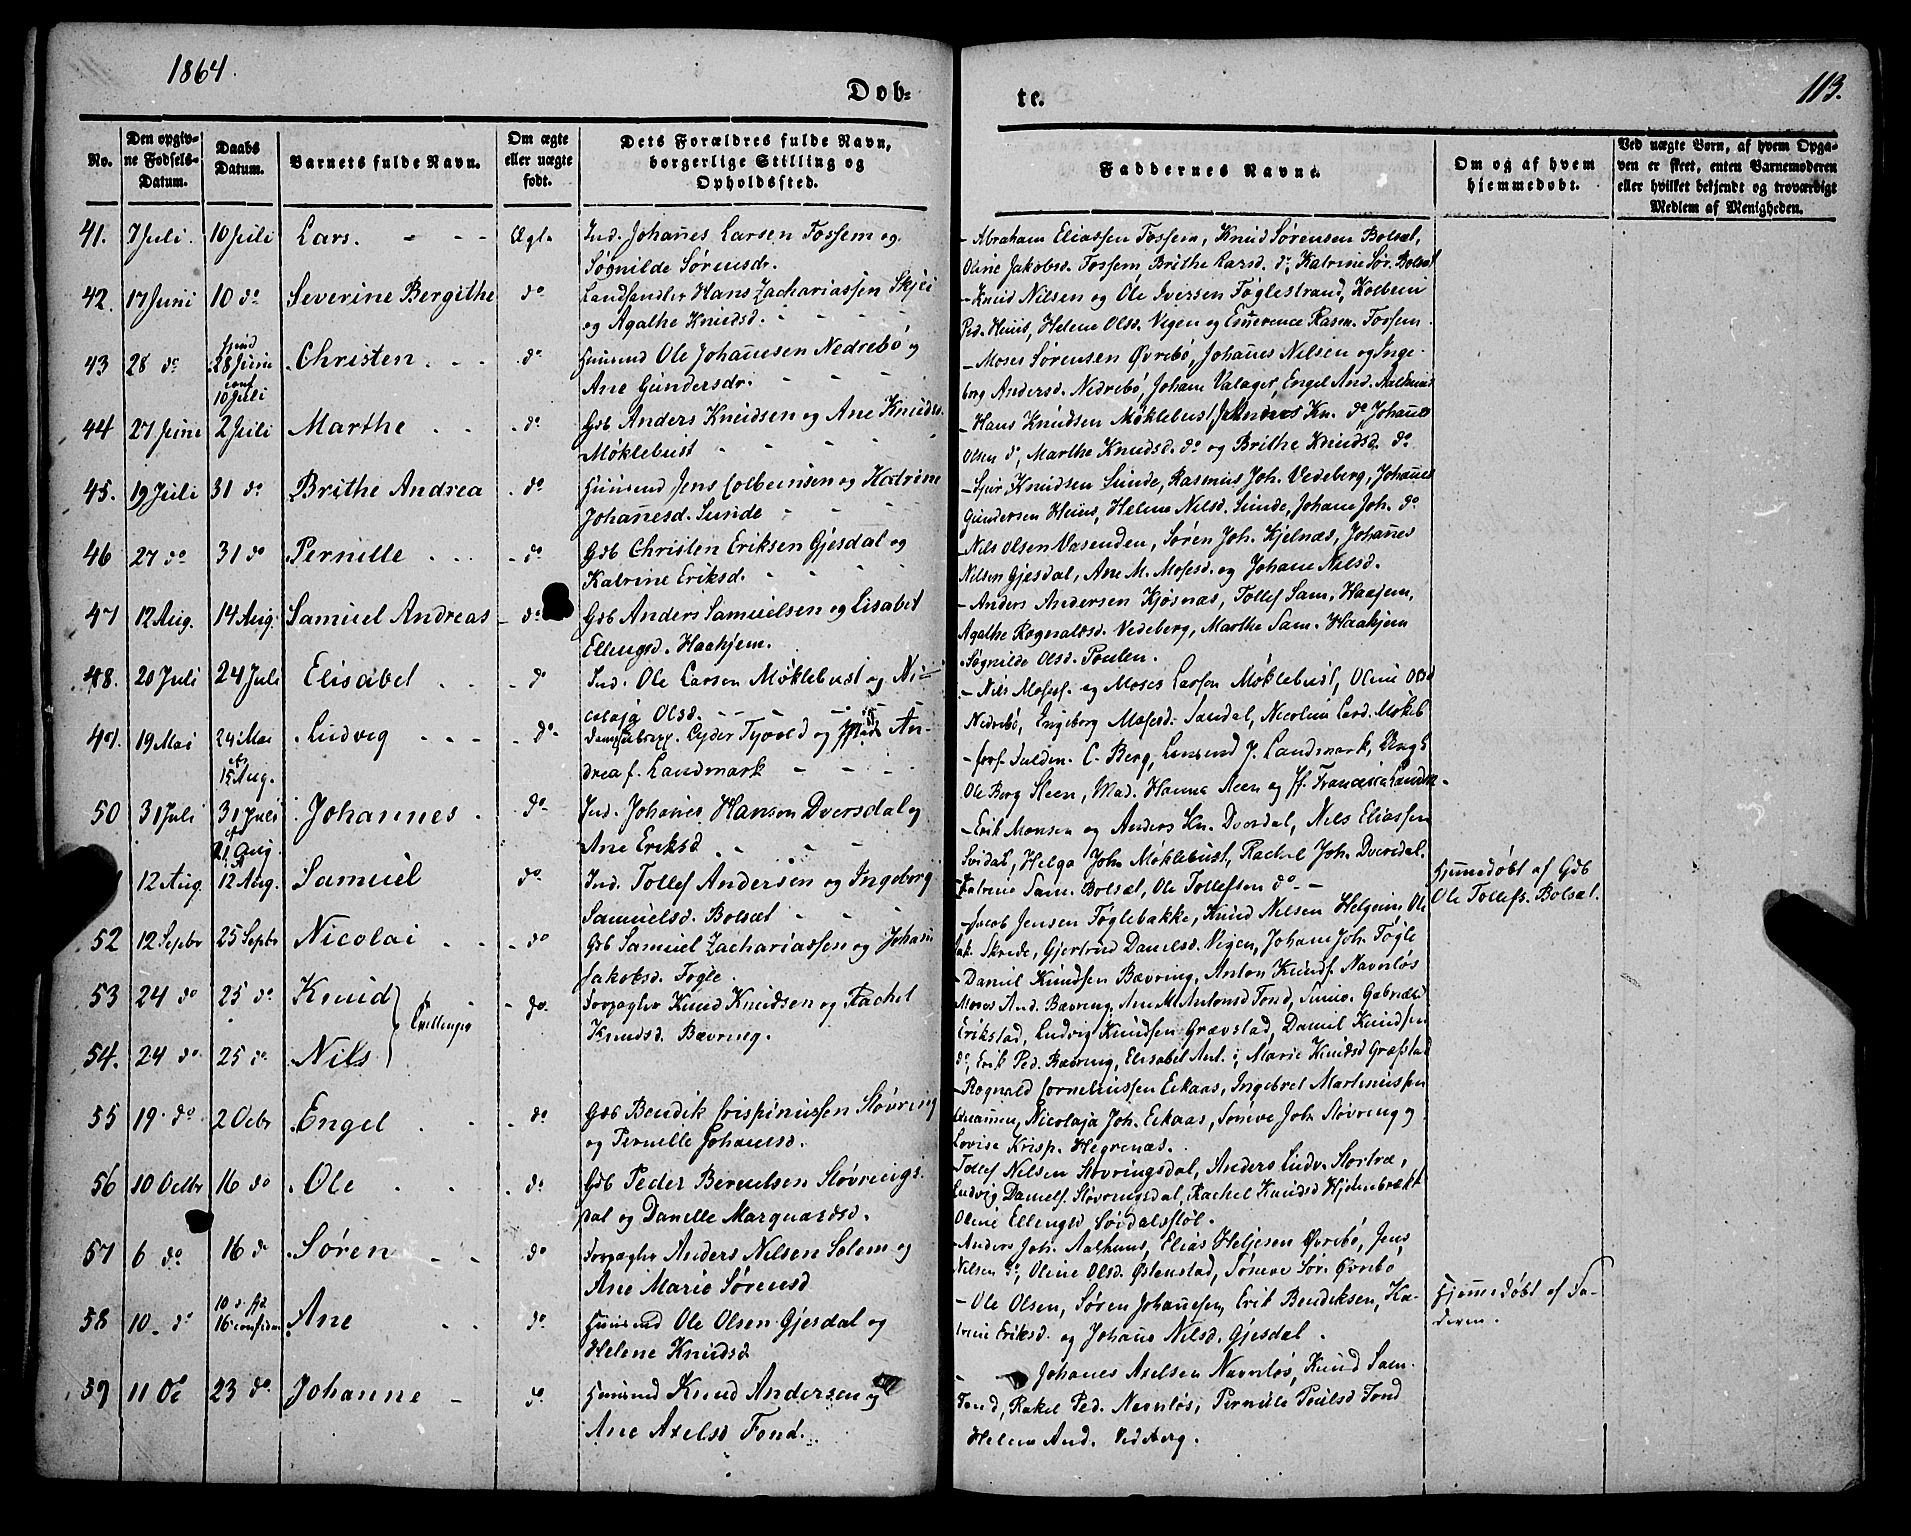 1864.
Døb-
te.
113.
No.
Den opgiv-
ne Fødsels-
Datum.
Daabs
Datum.
Barnets fulde Navn.
Om ægte
eller uægte
født.
Dets Forældres fulde Navn,
borgerlige Stilling og
Opholdssted.
Faddernes Navne.
Om og af hvem
hjemmedøbt.
Ved uægte Børn, af hvem Opga-
ven er skeet, enten Barnemoderen
eller hvilket bekjendt og troværdigt
Medlem af Menigheden.
41. 7 Juli. 10 Juli Lars. Ind. Johañes Larsen Fossem og
Søgnilde Sørensdr.
Abraham Eliassen Fossem, Knud Sørensen Bolsæt,
Oline Jakobsd. Fossem, Brithe Larsd. do, Katrine Sør. Bolsæt
42. 17 Juni 10 do Severine Bergithe do Hans Zachariassen Skjei
og Agathe Knudsd.
Knud Nilsen og Ole Iversen Føglestrand, Kolbein
Ped. Huus, Helene Olsd. Vegen og Rasm. Fossem
43 28 do 28 Juni
10 Juli
Christen do Huusmd Ole Johañesen Nedrebø og
Ane Gundersdr.
Moses Sørensen Øvrebø, Johañes Nilsen og Inge-
borg Andersd. Nedrebø, Johane Valaget, Engel And.
44 27 Juni 2 Juli Marthe do Gdb Anders Knudsen og Ane Knudsd.
Møklebust
Hans Knudsen Møklebust, Andreas Kn. do Johañes
Olsen do, Marthe Knudsd. do og Brithe Knudsd. do
45. 19 Juli 31 do Brithe Andrea do Huusmd Jens Colbeinsen og Katrine
Johañesd. Sunde
Knudsen Sunde, Rasmus Joh. Vedeberg, Johañes
Gundersen Huus, Helene Nilsd. Sunde, Johane Joh. do
46 27 do 31 do Pernille do Gdb Christen Eriksen Gjesdal og
Katrine Eriksd.
Nils Olsen Vasenden, Søren Joh. Kjelnæs, Johañes
Nilsen Gjesdal, Ane M. Mosesd. og Johane Nilsd.
47 12 Aug. 14 Aug. Samuel Andreas do Gdb Anders Samuelsen og Lisabet
Ellingsd. Haahjem.
Anders Andersen Kjøsnæs, Tollef Sam. Haajem,
Agathe Rognaldsd. Vedeberg, Marthe Sam. Haahjem
Søgnilde Olsd. Poulen.
48. 20 Juli 24 Juli Elisabet do Ind. Ole Larsen Møklebust og Ni-
colaja Olsd.
Nils Mosess. og Moses Larsen Møklebust, Oline Olsd
Nedrebø, Engeborg Mosesd. Sandal, Nicolina Møkleb
49. 19 Mai 24 Mai
15 Aug.
Ludvig do Tyvold og An-
drea f. Landmark
C. Berg, Lensmd J. Landmark,
Ole Berg Steen, Mad. Hanna Steen og
50 31 Juli 31 Juli
21 Aug
Johannes do Ind. Johañes Hanson Dversdal og
Ane Eriksd
Erik Monsen og Anders Kn. Dversdal, Nils Eliassen
Svidal, Helga Joh. Møklebust, Rachel Joh. Dversdal.
12 Aug. 12 Aug. Samuel do Ind. Tollef Andersen og Ingeborg
Samuelsd. Bolsæt
Katrine Sam. Bolsæt, Ole Tollefsen do
Hjemedøbt af Gdb
Ole Tollefs. Bolsæt.
52 12 Septbr 25 Septbr Nicolai do Gdb Samuel Zachariassen og Johane
Jakobsd. Fogle.
Jacob Jensen Føglebakke, Knud Nilsen Helgeim, Ole
Jak. Skrede, Gjertrud Danielsd. Vegen, Johane Joh. Føgle
53 24 do 25 do Knud
Tvillinger
do Forpagter Knud Knudsen og Rachel
Knudsd. Bævring.
Daniel Knudsen Bævring, Anton Knuds. Navnløs
Moses And. Bævring, Ane M. Antonsd Fond,
Erikstad, Ludvig Knudsen Grævstad, Daniel Knudsen
54. 24 do 25 do Nils
do, Erik Ped. Bævring, Elisabet Ant. Marie Knudsd
55 19 do 2 Octbr Engel do Gdb Bendik Crispinussen Støvring
og Pernille Johañesd.
Rognald Corneliussen Eikaas, Ingebret Martinussen
Nicolaja Joh. Eikaas, Joh. Støvring og
Lovise Krisp. Hegrenæs.
56 10 Octbr 16 do Ole do Gdb Peder Berentsen Støvrings-
dal og Danelle Marquardsd.
Tollef Nilsen Støvringsdal, Anders Ludv. Stortræ,
Ludvig Daniels. Støvringsdal, Rachel Knudsd
Oline Ellingsd
57 6 do 16 do Søren do Forpagter Anders Nilsen Solem og
Ane Marie Sørensd
Anders Joh. Aalhuus, Elias Heljesen Øvrebø, Jens
Nilsen do, Oline Olsd. Østenstad, Sør. Øvrebø
58 10 do 10 do
16
Ane do Huusmd Ole Olsen Gjesdal og
Helene Knudsd
Ole Olsen, Søren Johañesen, Erik Bendiksen, Ka-
trine Eriksd. og Johañe Nilsd. Gjesdal.
Hjemedøbt af Fa-
deren.
59 11 Oc 23 do Johanne do Huusmd Knud Andersen og
Ane Axelsd Fond.
Johañes Axelsen Navnløs, Knud Sam.
Fond, Rakel Ped. Navnløs, Pernille Poulsd Fond
Helene And. Vedeberg.